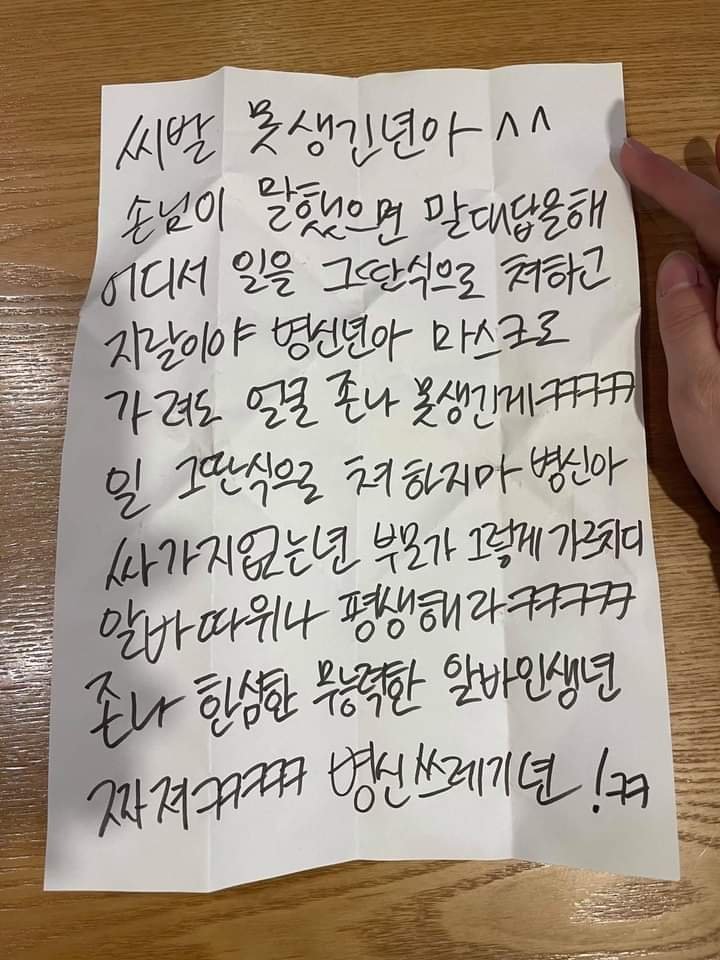 씨발 못생긴년아 ^^
손님이 말했으면 말대답을해
어디서 일을 그딴식으로 쳐하고
지랄이야 병신년아 마스크로
가려도 얼굴 존나 못생긴게ㅋㅋㅋㅋ
일 그딴식으로 쳐 하지마 병신아
싸가지없는년 부모가 그렇게 가르치디
알바따위나 평생해라ㅋㅋㅋㅋ
존나 한심한 무능력한 알바인생년
짜져ㅋㅋㅋㅋ 병신쓰레기년 !ㅋㅋ